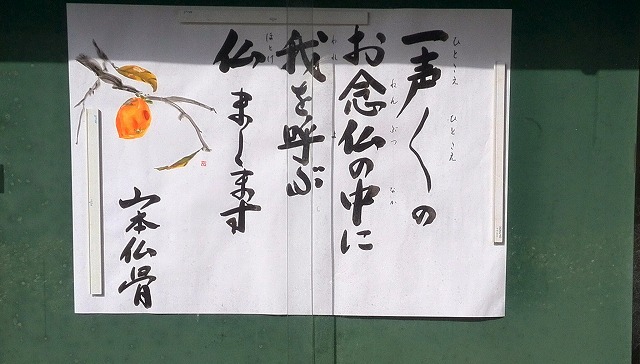 一声〱の
お念仏の中に
我を呼ぶ
仏まします
山本仏骨
ひとこえ ひとこえ
ねんぶつ なか
われ よ
ほとけ